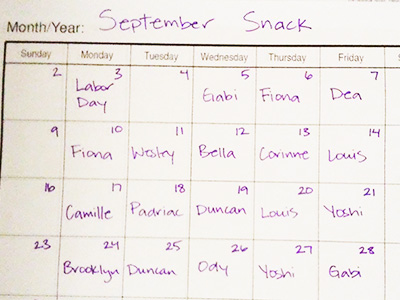 Month/Year: September Snack
Sunday Monday Tuesday Wednesday Thursday Friday
2 3 4 5 6 7
Labor Day Gabi Fiona Dea
9 10 11 12 13 14
Fiona Wesley Bella Corinne Louis
16 17 18 19 20 21
Camille Padriac Duncan Louis Yoshi
23 24 25 26 27 28
Brooklyn Duncan Ody Yoshi Gabi